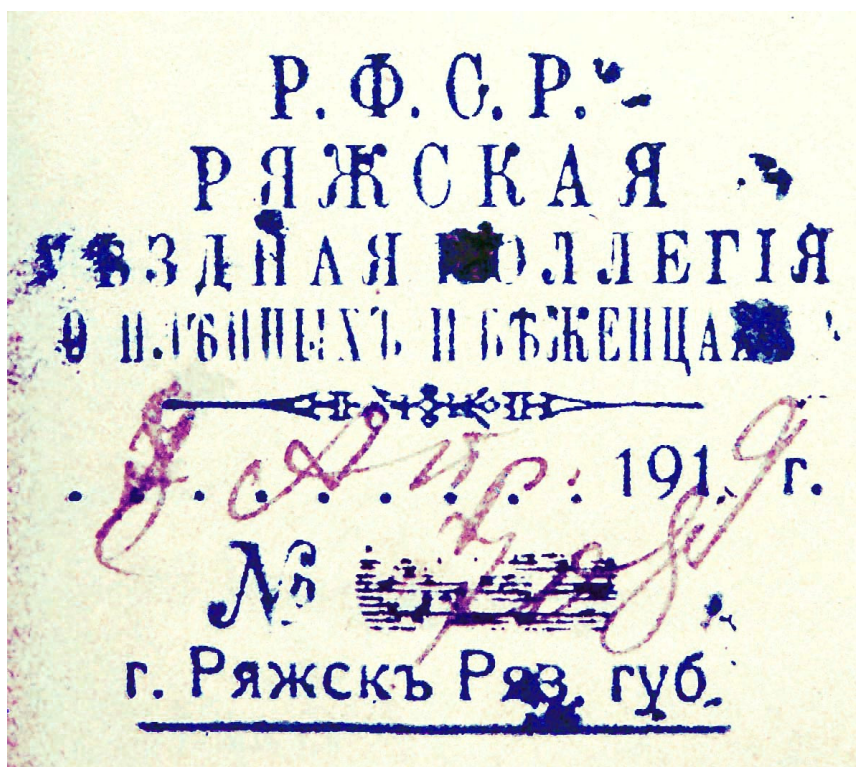 Р. Ф. С. Р.
РЯЖСКАЯ
УѢЗДНАЯ КОЛЛЕГІЯ
О ПЛѢННЫХЪ И БѢЖЕНЦАХЪ
8 Апр. 1919 г.
№
г. Ряжскъ Ряз. губ.